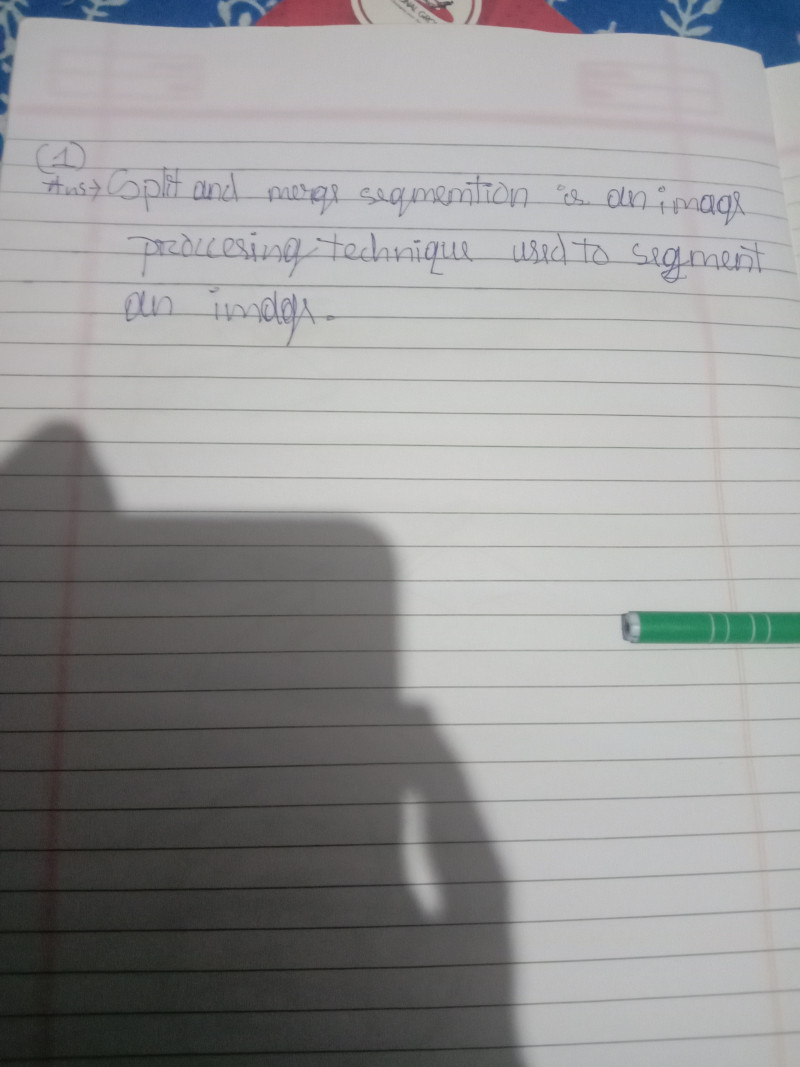 ONAL GEO
(1)
Ans→ Split and merge segmemtion is an image
proccesing technique used to segment
an image.